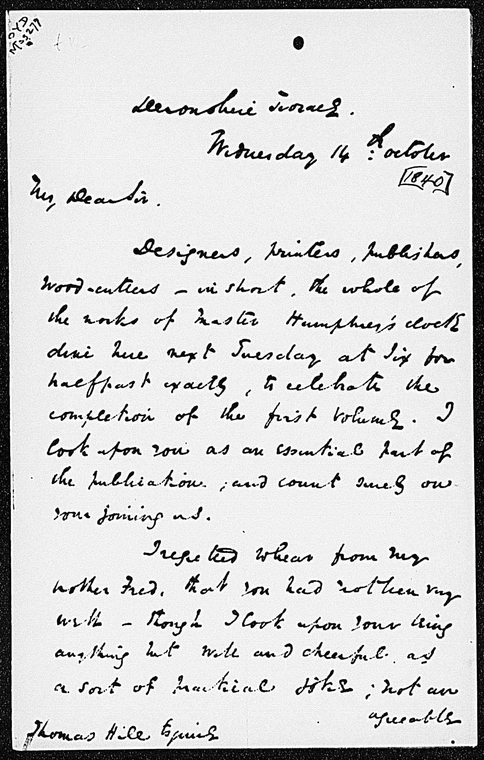 Devonshire Terrace.
Wednesday 14th October
[1840]
My Dear Sir.
Designers, printers, publishers,
wood-cutters – in short, the whole of
the works of Master Humphrey's clock
dine here next Tuesday at Six for
half past exactly, to celebrate the
completion of the first volume. I
look upon you as an essential part of
the publication; and count surely on
your joining us.
I regretted to hear from my
brother Fred, that you had not been very
well – though I look upon your being
anything but well and cheerful, as
a sort of practical joke; not an
agreeable
Thomas Hill Esquire